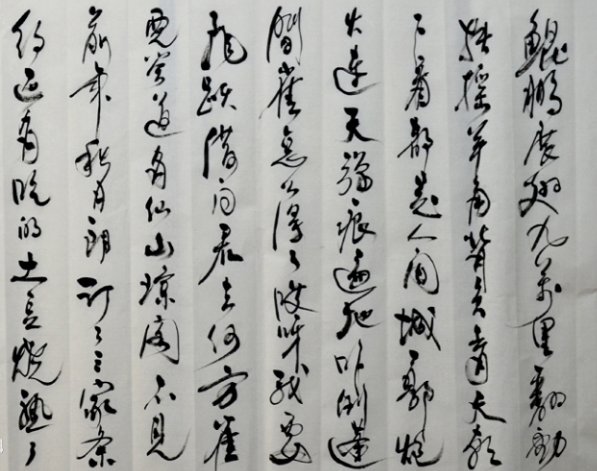 鲲鹏展翅九万里翻动
扶摇羊角背负青天朝
下看都是人间城郭炮
火连天弹痕遍地吓倒蓬
间雀怎么得了哎呀我要
飞跃借问君去何方雀
儿答道有仙山琼阁不见
前年秋月朗订了三家条
约还有吃的土豆烧熟了